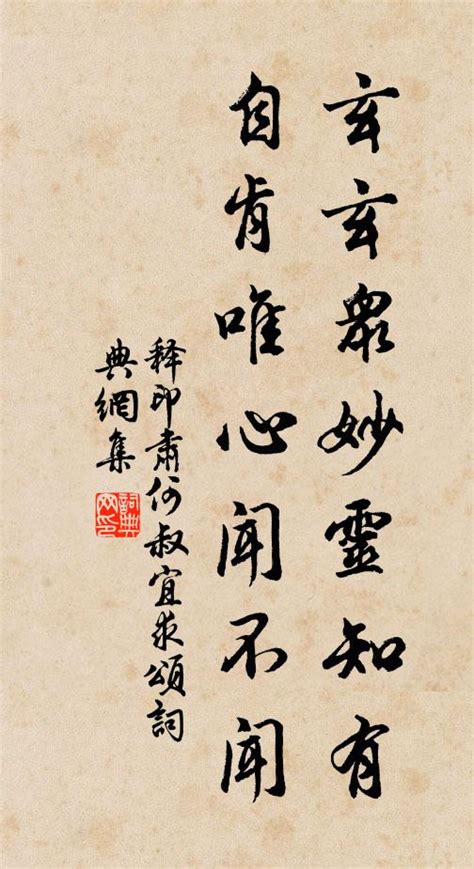 玄玄衆妙靈知有
自肯唯心聞不聞
释印肅何叔宜求頌詞
典網集
詞典網印